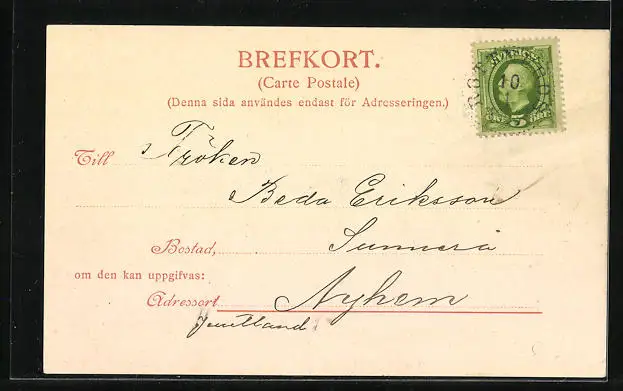 BREFKORT.
(Carte Postale)
(Denna sida användes endast för Adresseringen.)
SVERIGE
10
5
ÖRE
Till Fröken
Beda Eriksson
Bostad, Sunnerå
om den kan uppgifvas:
Adressort Nyhem
Jemtland